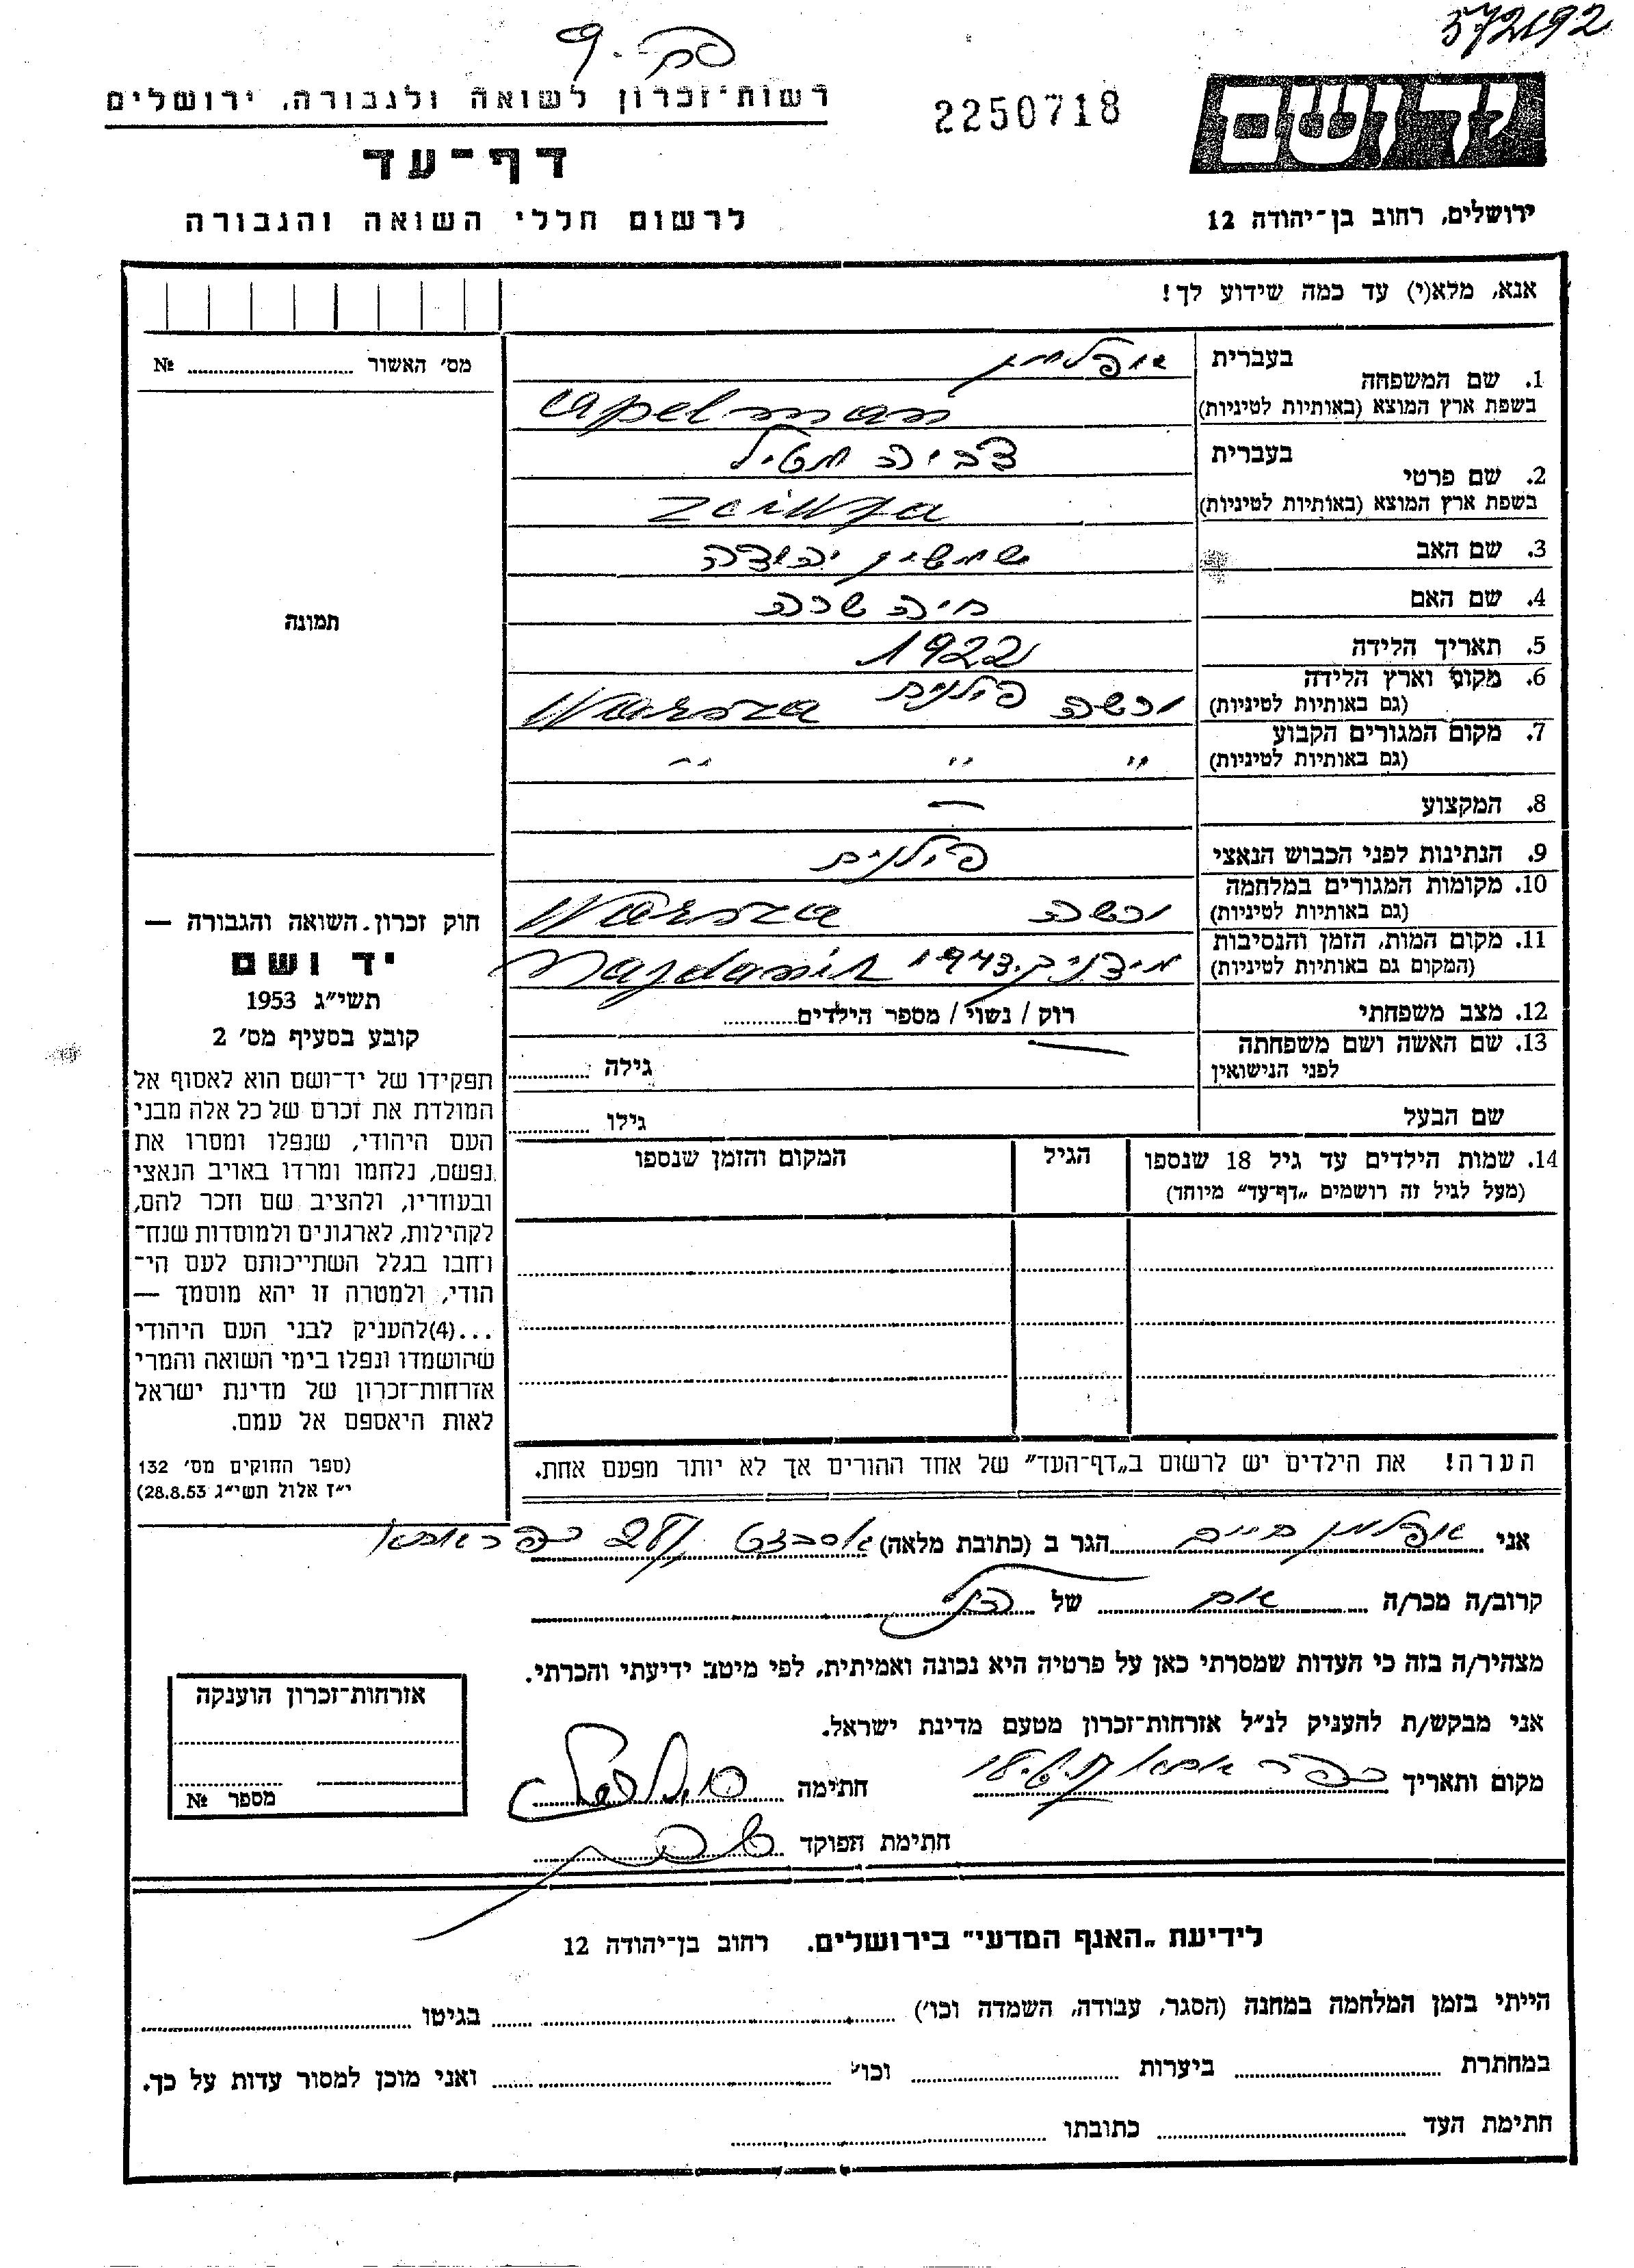 572192
2250718
יד ושם
רשות־זכרון לשואה ולגבורה, ירושלים
דף־עד
לרשום חללי השואה והגבורה
ירושלים, רחוב בן־יהודה 12
אנא, מלא(י) עד כמה שידוע לך!
מס׳ האשור № 
תמונה
1. שם המשפחה בעברית אפלמן
בשפת ארץ המוצא (באותיות לטיניות) apelman
2. שם פרטי בעברית צביה מטיל
בשפת ארץ המוצא (באותיות לטיניות)
3. שם האב שמשון יהודה
4. שם האם חיה שרה
5. תאריך הלידה 1922
6. מקום וארץ הלידה (גם באותיות לטיניות) ורשה פולנית Warsza
7. מקום המגורים הקבוע (גם באותיות לטיניות) " " "
8. המקצוע —
9. הנתינות לפני הכבוש הנאצי פולנית
10. מקומות המגורים במלחמה (גם באותיות לטיניות) ורשה Warsza
11. מקום המות, הזמן והנסיבות (המקום גם באותיות לטיניות) מידניק 1943 Majdanik
12. מצב משפחתי רווק / נשוי / מספר הילדים
13. שם האשה ושם משפחתה לפני הנישואין — גילה
שם הבעל גילו
14. שמות הילדים עד גיל 18 שנספו הגיל המקום והזמן שנספו
(מעל לגיל זה רושמים „דף־עד” מיוחד)
הערה! את הילדים יש לרשום ב„דף־העד” של אחד ההורים אך לא יותר מפעם אחת.
חוק זכרון השואה והגבורה —
יד ושם
תשי״ג 1953
קובע בסעיף מס׳ 2
תפקידו של יד־ושם הוא לאסוף אל
המולדת את זכרם של כל אלה מבני
העם היהודי, שנפלו ומסרו את
נפשם, נלחמו ומרדו באויב הנאצי
ובעוזריו, ולהציב שם וזכר להם,
לקהילות, לארגונים ולמוסדות שנח־
רבו בגלל השתייכותם לעם הי־
הודי, ולמטרה זו יהא מוסמך —
...(4)להעניק לבני העם היהודי
שהושמדו ונפלו בימי השואה והמרי
אזרחות־זכרון של מדינת ישראל
לאות היאספם אל עמם.
(ספר החוקים מס׳ 132
י״ז אלול תשי״ג 28.8.53)
אני אפלמן חיים הגר ב (כתובת מלאה) 28/ כפר אתא
קרוב/ה מכר/ה אח של הנ״ל
מצהיר/ה בזה כי העדות שמסרתי כאן על פרטיה היא נכונה ואמיתית, לפי מיטב ידיעתי והכרתי.
אני מבקש/ת להעניק לנ״ל אזרחות־זכרון מטעם מדינת ישראל.
מקום ותאריך כפר אתא חתימה
חתימת הפוקד
אזרחות־זכרון הוענקה
מספר №
לידיעת „האגף המדעי” בירושלים. רחוב בן־יהודה 12
הייתי בזמן המלחמה במחנה (הסגר, עבודה, השמדה וכו׳) בגיטו
במחתרת ביערות וכו׳ ואני מוכן למסור עדות על כך.
חתימת העד כתובתו